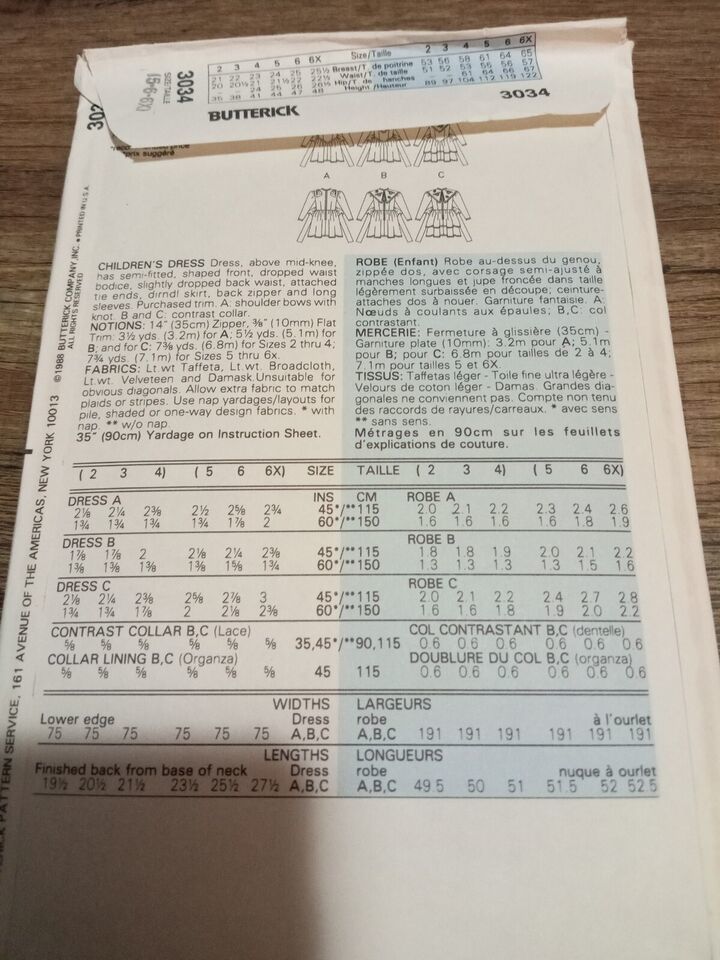 2 3 4 5 6 6X Size/Taille 2 3 4 5 6 6X
21 22 23 24 25 25½ Breast/T. de poitrine 53 56 58 61 64 65
20 20½ 21 21½ 22 22½ Waist/T. de taille 51 52 53 55 56 57
24 25 26 26½ Hip/T. de hanches 61 64 66 67
35 38 41 44 47 48 Height/Hauteur 89 97 104 112 119 122
3034
SIZE/TAILLE
(5-6-6X)
BUTTERICK
3034
302
price
prix suggéré
A B C
CHILDREN'S DRESS Dress, above mid-knee,
has semi-fitted, shaped front, dropped waist
bodice, slightly dropped back waist, attached
tie ends, dirndl skirt, back zipper and long
sleeves. Purchased trim. A: shoulder bows with
knot. B and C: contrast collar.
NOTIONS: 14" (35cm) Zipper, ⅜" (10mm) Flat
Trim. 3½ yds. (3.2m) for A; 5½ yds. (5.1m) for
B; and for C: 7⅜ yds. (6.8m) for Sizes 2 thru 4;
7¾ yds. (7.1m) for Sizes 5 thru 6x.
FABRICS: Lt.wt Taffeta, Lt.wt. Broadcloth,
Lt.wt. Velveteen and Damask.Unsuitable for
obvious diagonals. Allow extra fabric to match
plaids or stripes. Use nap yardages/layouts for
pile, shaded or one-way design fabrics. * with
nap. ** w/o nap.
35" (90cm) Yardage on Instruction Sheet.
ROBE (Enfant) Robe au-dessus du genou,
zippée dos, avec corsage semi-ajusté à
manches longues et jupe froncée dans taille
légèrement surbaissée en découpe; ceinture-
attaches dos à nouer. Garniture fantaisie. A:
Nœuds à coulants aux épaules; B,C: col
contrastant.
MERCERIE: Fermeture à glissière (35cm) -
Garniture plate (10mm): 3.2m pour A; 5.1m
pour B; pour C: 6.8m pour tailles de 2 à 4;
7.1m pour tailles 5 et 6X.
TISSUS: Taffetas léger - Toile fine ultra légère -
Velours de coton léger - Damas. Grandes dia-
gonales ne conviennent pas. Compte non tenu
des raccords de rayures/carreaux. * avec sens
** sans sens.
Métrages en 90cm sur les feuillets
d'explications de couture.
( 2 3 4) ( 5 6 6X) SIZE TAILLE ( 2 3 4) ( 5 6 6X)
DRESS A INS CM ROBE A
2⅛ 2¼ 2⅜ 2½ 2⅝ 2¾ 45*/**115 2.0 2.1 2.2 2.3 2.4 2.6
1¾ 1¾ 1¾ 1¾ 1⅞ 2 60*/**150 1.6 1.6 1.6 1.6 1.8 1.9
DRESS B ROBE B
1⅞ 1⅞ 2 2⅛ 2¼ 2⅜ 45*/**115 1.8 1.8 1.9 2.0 2.1 2.2
1⅜ 1⅜ 1⅜ 1⅜ 1⅝ 1¾ 60*/**150 1.3 1.3 1.3 1.3 1.5 1.6
DRESS C ROBE C
2⅛ 2¼ 2⅜ 2⅝ 2⅞ 3 45*/**115 2.0 2.1 2.2 2.4 2.7 2.8
1¾ 1¾ 1⅞ 2 2⅛ 2⅜ 60*/**150 1.6 1.6 1.8 1.9 2.0 2.2
CONTRAST COLLAR B,C (Lace) COL CONTRASTANT B,C (dentelle)
⅝ ⅝ ⅝ ⅝ ⅝ ⅝ 35,45*/**90,115 0.6 0.6 0.6 0.6 0.6 0.6
COLLAR LINING B,C (Organza) DOUBLURE DU COL B,C (organza)
⅝ ⅝ ⅝ ⅝ ⅝ ⅝ 45 115 0.6 0.6 0.6 0.6 0.6 0.6
WIDTHS LARGEURS
Lower edge Dress robe à l'ourlet
75 75 75 75 75 75 A,B,C A,B,C 191 191 191 191 191 191
LENGTHS LONGUEURS
Finished back from base of neck Dress robe nuque à ourlet
19½ 20½ 21½ 23½ 25½ 27½ A,B,C A,B,C 49.5 50 51 51.5 52 52.5
PATTERN SERVICE, 161 AVENUE OF THE AMERICAS, NEW YORK 10013 ©1988 BUTTERICK COMPANY, INC. • PRINTED IN U.S.A.
ALL RIGHTS RESERVED